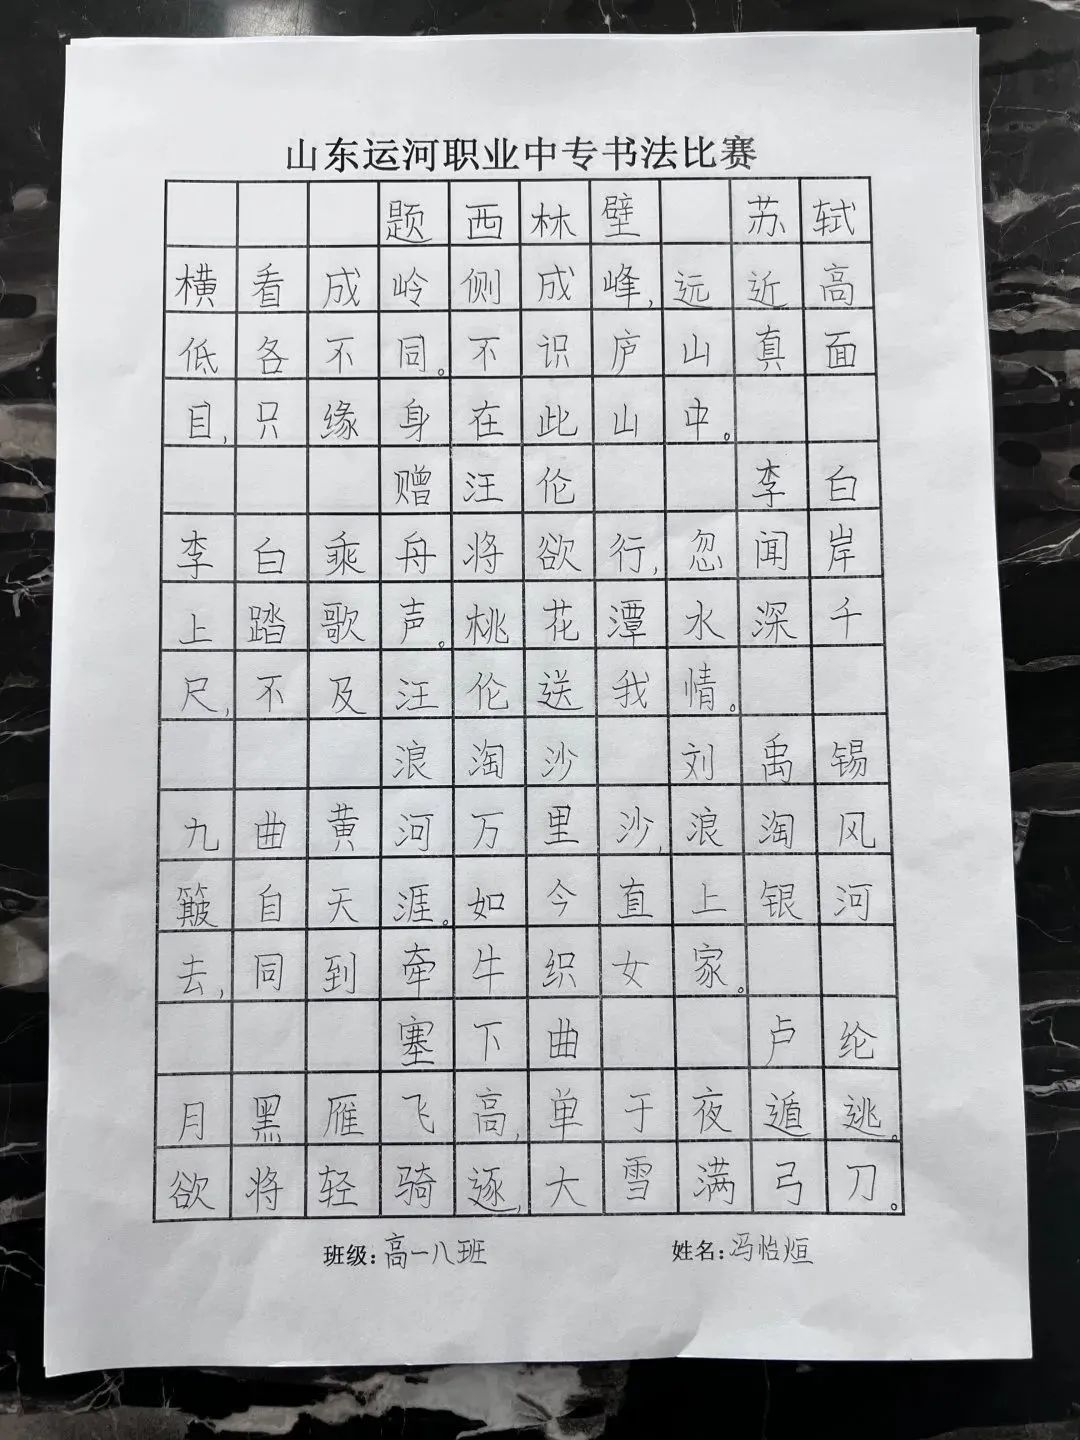 山东运河职业中专书法比赛
题西林壁 苏轼
横看成岭侧成峰,远近高
低各不同。不识庐山真面
目,只缘身在此山中。
赠汪伦 李白
李白乘舟将欲行,忽闻岸
上踏歌声。桃花潭水深千
尺,不及汪伦送我情。
浪淘沙 刘禹锡
九曲黄河万里沙,浪淘风
簸自天涯。如今直上银河
去,同到牵牛织女家。
塞下曲 卢纶
月黑雁飞高,单于夜遁逃。
欲将轻骑逐,大雪满弓刀。
班级:高一八班 姓名:冯怡烜